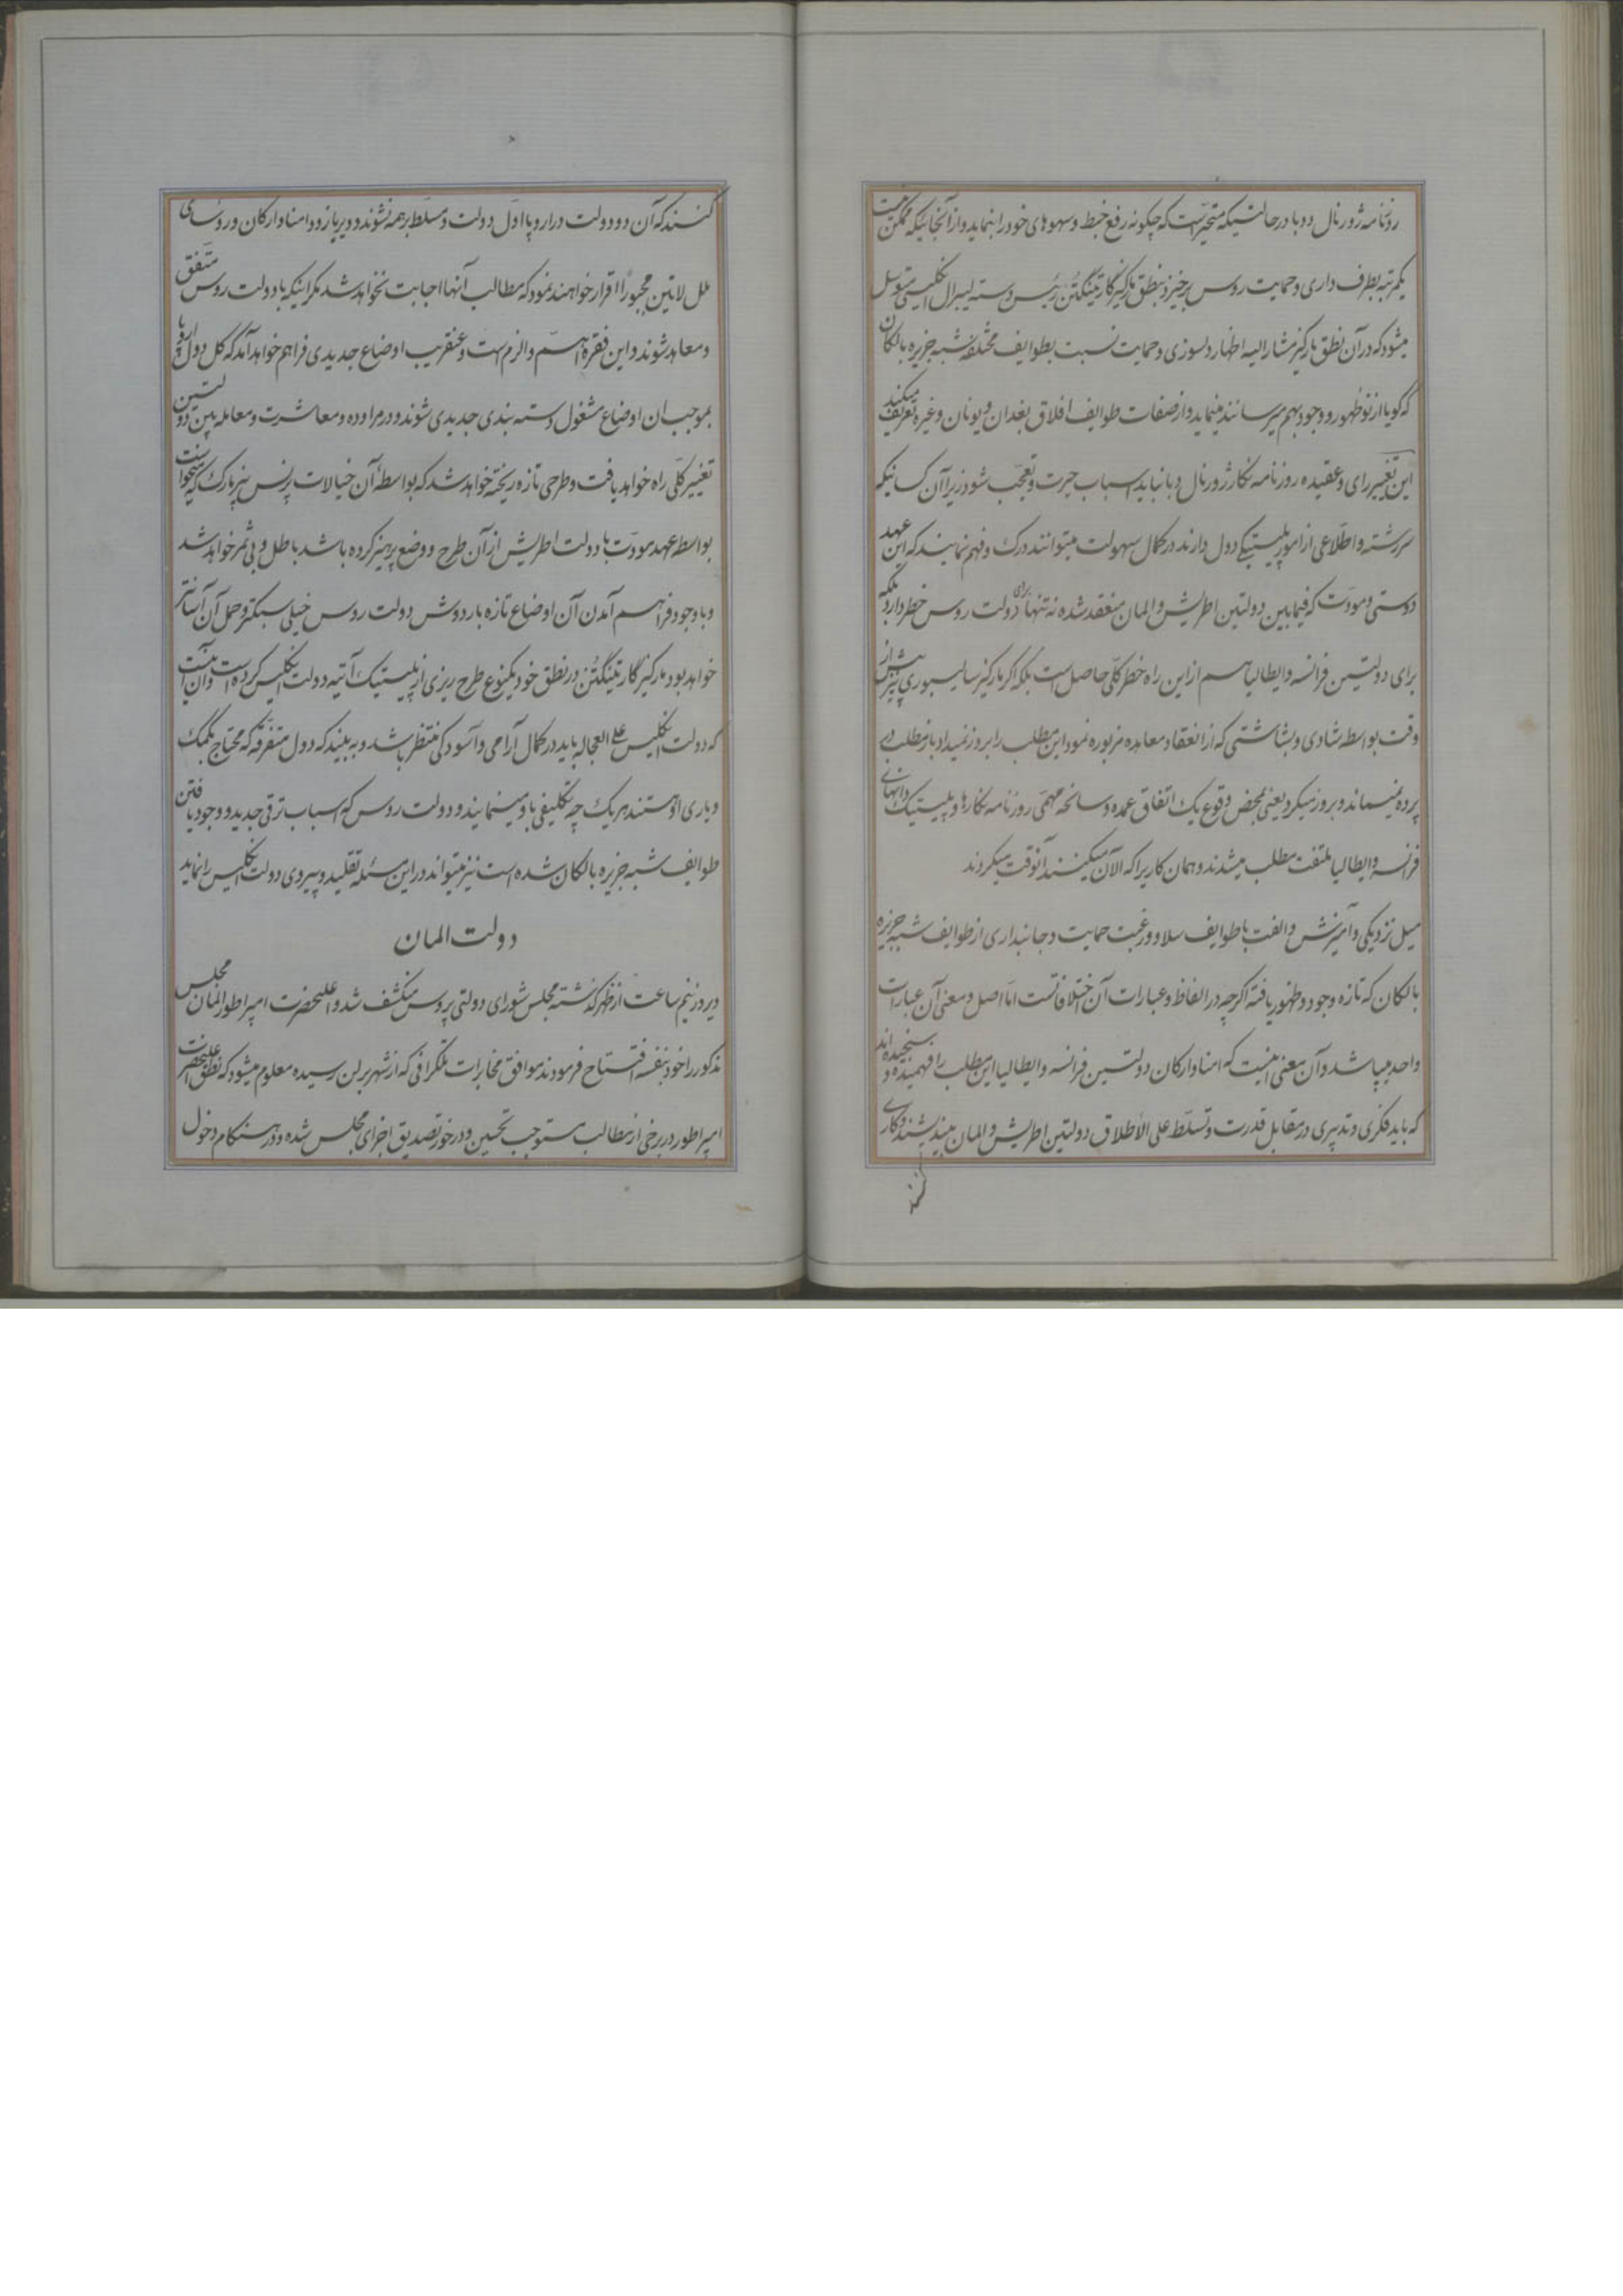 روزنامه ژورنال دوبا در حالتیکه متحیر است که چگونه رفع خبط و سهوهای خود را بنماید و از آنجائیکه ممکن نیست
یکمرتبه بطرف داری و حمایت روس برخیزد بنطق مارکیز گارتینگتن رئیس دسته لیبرال انگلیسی متوسل
میشود که در آن نطق مارکیز مشارالیه اظهار دلسوزی و حمایت نسبت بطوایف مختلفه شبه جزیره بالکان
که گویا از نو ظهور و وجود بهم میرسانند مینماید و از صفات طوایف افلاق بغدان و یونان و غیره تعریف میکند
این تغییر رای و عقیده روزنامه نگار ژورنال دبا نباید اسباب حیرت و تعجب شود زیرا آن کسانیکه
سررشته و اطلاعی از امور پلیتیکی دول دارند در کمال سهولت میتوانند درک و فهم نمایند که این عهد
دوستی و مودت که فیمابین دولتین اطریش و المان منعقد شده نه تنها برای دولت روس خطر دارد بلکه
برای دولتین فرانسه و ایطالیا هم از این راه خطر کلی حاصل است بلکه اگر مارکیز سالیسبوری پیش از
وقت بواسطه شادی و بشاشتی که از انعقاد معاهده مزبوره نمود این مطلب را بروز نمیداد باز مطلب در
پرده نمیماند و بروز میکرد یعنی بمحض وقوع یک اتفاق عمده و سانحه مهمی روزنامه نگارها و پلیتیک دانهای
فرانسه و ایطالیا ملتفت مطلب میشدند و همان کاریرا که الآن میکنند آنوقت میکردند
میل نزدیکی و آمیزش و الفت با طوایف سلاو و رغبت حمایت و جانبداری از طوایف شبه جزیره
بالکان که تازه وجود و ظهور یافته اگرچه در الفاظ و عبارات آن اختلافاتست اما اصل و معنی آن عبارات
واحد میباشد و آن معنی اینست که امنا و ارکان دولتین فرانسه و ایطالیا این مطلب را فهمیده و سنجیده اند
که باید فکری و تدبیری در مقابل قدرت و تسلط علی الاطلاق دولتین اطریش و المان بیندیشند و کاری
کنند
کنند که آن دو دولت در اروپا اول دولت و مسلط بر همه نشوند و دیر یا زود امنا و ارکان و روسای
ملل لاتین مجبوراً اقرار خواهند نمود که مطالب آنها اجابت نخواهد شد مگر اینکه با دولت روس متفق
و معاهد شوند و این فقره اهم و الزم است و عنقریب اوضاع جدیدی فراهم خواهد آمد که کل دول اروپا
بموجب ان اوضاع مشغول دسته بندی جدیدی شوند و در مراوده و معاشرت و معامله بین دولتین
تغییر کلی راه خواهد یافت و طرحی تازه ریخته خواهد شد که بواسطه آن خیالات پرنس بیزمارک که میخواست
بواسطه عهد مودت با دولت اطریش از آن طرح و وضع پرهیز کرده باشد باطل و بی ثمر خواهد شد
و با وجود فراهم آمدن آن اوضاع تازه بار دوش دولت روس خیلی سبکتر و حمل آن آسانتر
خواهد بود مارکیز گارتینگتن در نطق خود یکنوع طرح ریزی از پلیتیک آتیه دولت انگلیس کرده است و آن اینست
که دولت انگلیس علی العجاله باید در کمال آرامی و آسودگی منتظر باشد و به بیند که دول متفرقه که محتاج بکمک
و یاری او هستند هر یک چه تکلیفی باو مینمایند و دولت روس که اسباب ترقی جدید و وجود یافتن
طوایف شبه جزیره بالکان شده است نیز میتواند در این مسئله تقلید و پیروی دولت انگلیس را نماید
دولت المان
دیروز نیم ساعت از ظهر گذشته مجلس شورای دولتی پروس منکشف شد و اعلیحضرت امپراطور المان مجلس
مذکور را خود بنفسه افتتاح فرمودند موافق مخابرات تلگرافی که از شهر برلن رسیده معلوم میشود که نطق اعلیحضرت
امپراطور در برخی از مطالب مستوجب تحسین و در خور تصدیق اجزای مجلس شده و در هنگام دخول